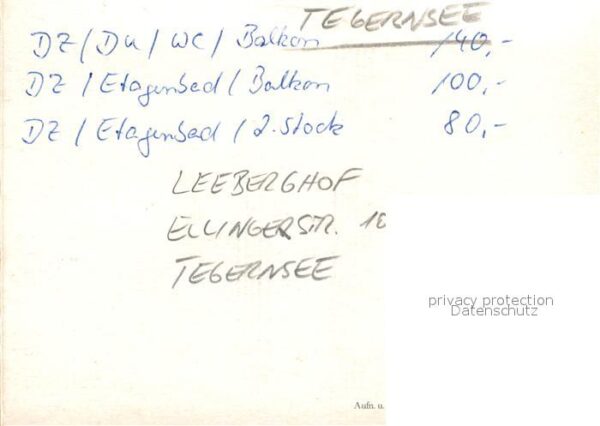 TEGERNSEE
DZ / DU / WC / Balkon 140,-
DZ / Etagenbad / Balkon 100,-
DZ / Etagenbad / 2. Stock 80,-
LEEBERGHOF
ELLINGERSTR. 10
TEGERNSEE
privacy protection
Datenschutz
Aufn. u.